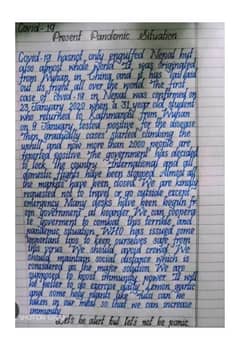 Covid-19
Present Pandemic Situation
Covid-19 hasnot only engulfed Nepal but
also almost whole world. It was originated
from Wuhan, in China and it has spread
out its fright all over the world. The first
case of Covid-19 in Nepal was confirmed on
23 January 2020 when a 31 year old student
who returned to Kathmandu from Wuhan
on 9 January, tested positive for the disease.
Then, gradually cases started climbing the
uphill, and now more than 2000 people are
reported positive. The government has decided
to lock the country. International and all
domestic flights have been stopped. Almost all
the markets have been closed. We are kindly
requested not to travel or go outside except
emergency. Many desks have been begun
government at hospitals. We can
government to combat this terrible and
pandemic situation. WHO has issued some
important tips to keep ourselves safe from
this virus. We should avoid crowd. We
should maintain social distance which is
considered as the major solution. We are
supposed to boost immunity power. It will
be better to do exercise daily. Lemon, garlic
and some holy plants like Tulsi can be
taken in our meal so that we can increase
immunity.
Let's be alert but let's not be panic.